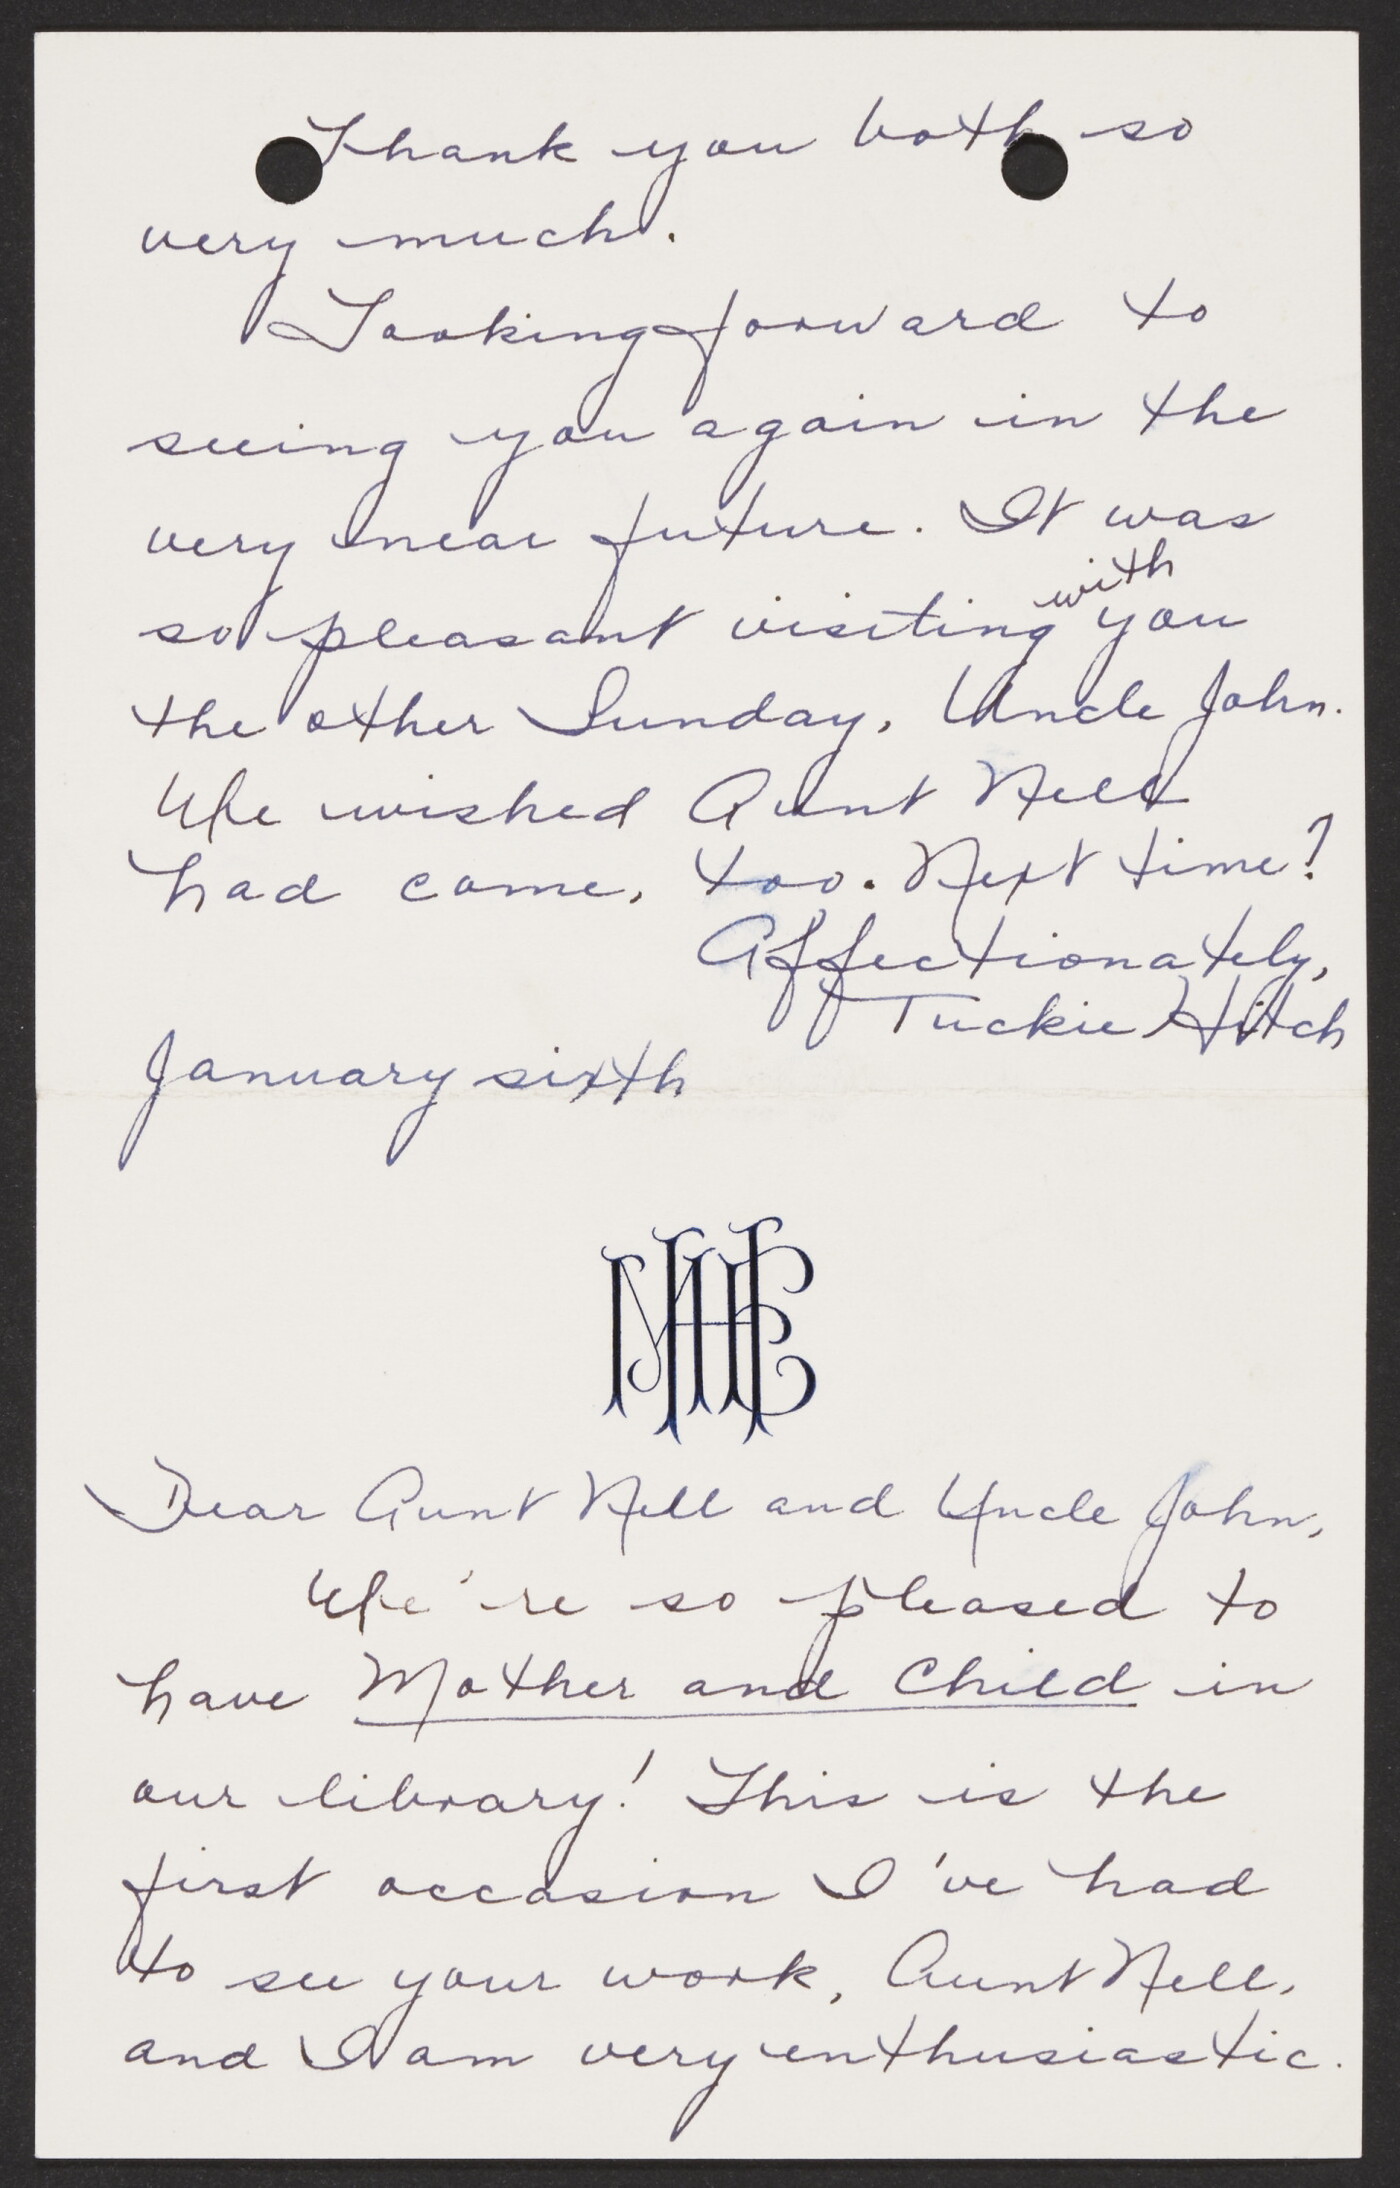 Thank you both so
very much.
Looking forward to
seeing you again in the
very near future. It was
so pleasant visiting with you
the other Sunday, Uncle John.
We wished Aunt Nell
had come, too. Next time?
Affectionately,
Tuckie Hitch
January sixth
MHE
Dear Aunt Nell and Uncle John,
We're so pleased to
have Mother and Child in
our library! This is the
first occasion I've had
to see your work, Aunt Nell,
and I am very enthusiastic.